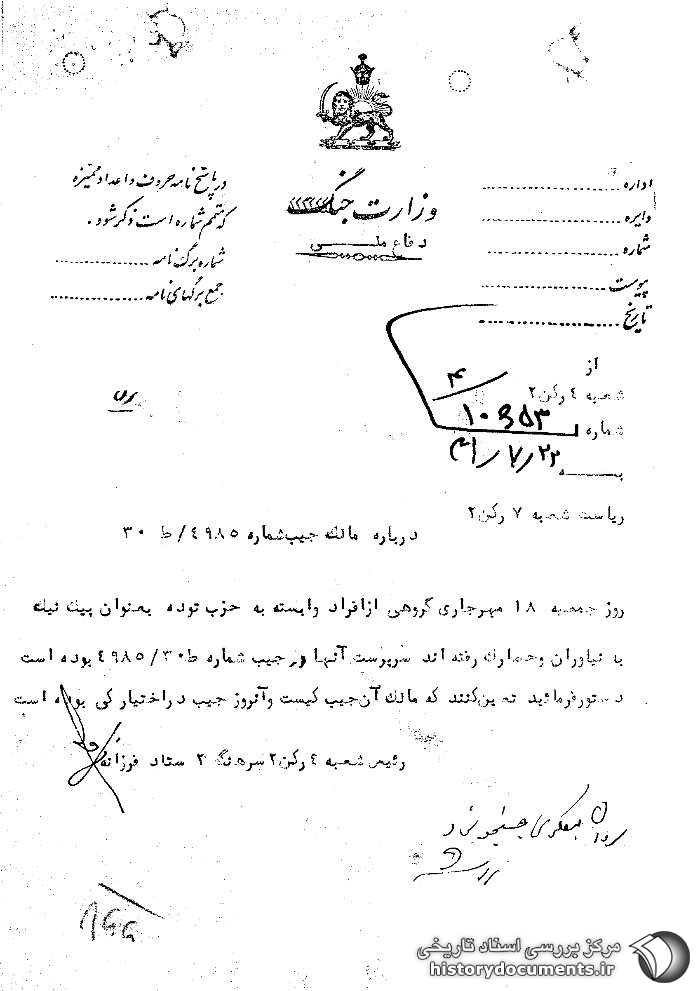 وزارت جنگ
دفاع ملی
در پاسخ نامه حروف و اعداد ممیزه
که متمم شماره است ذکر شود.
شماره برگ نامه
جمع برگهای نامه
اداره
دایره
شماره
پیوست
تاریخ
از
شعبه ٤ رکن ٢
شماره ۴/۱۰۹۵۳
۴۱/۷/۲۲
به
ریاست شعبه ۷ رکن ٢
درباره مالک جیپ شماره ٤۹۸۵/ط ۳۰
روز جمعه ۱۸ مهرجاری گروهی از افراد وابسته به حزب توده بعنوان پیک نیک
به نیاوران و جمارک رفته اند سرپرست آنها در جیپ شماره ط۳۰/٤۹۸۵ بوده است
دستور فرمائید تعیین کنند که مالک آن جیپ کیست و آنروز جیپ در اختیار کی بوده است
رئیس شعبه ٤ رکن ٢ سرهنگ ٢ ستاد فرزانه
مرکز بررسی اسناد تاریخی
historydocuments.ir